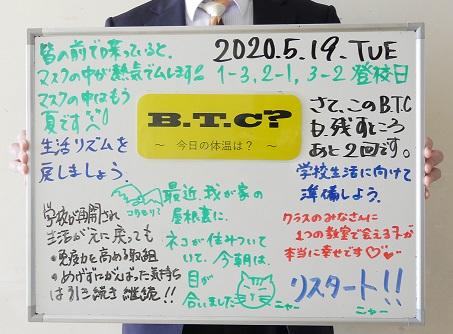 皆の前で喋っていると、
マスクの中が熱気でムします!!
マスクの中はもう
夏です
生活リズムを
戻しましょう。
2020.5.19.TUE
1-3, 2-1, 3-2 登校日
B.T.C?
～ 今日の体温は？ ～
さて、このB.T.C
も残すところ
あと2回です。
学校生活に向けて
準備しよう。
コウモリ?
最近、我が家の
屋根裏に、
ネコが住みつい
ていて、今朝は、
目が
合いました
ニャー
学校が再開され
生活が元に戻っても
・免疫力を高める取組
・めげずにがんばった気持ち
は引き続き継続!!
クラスのみなさんに
1つの教室で会える子が
本当に幸せです
リスタート!!
ニャー